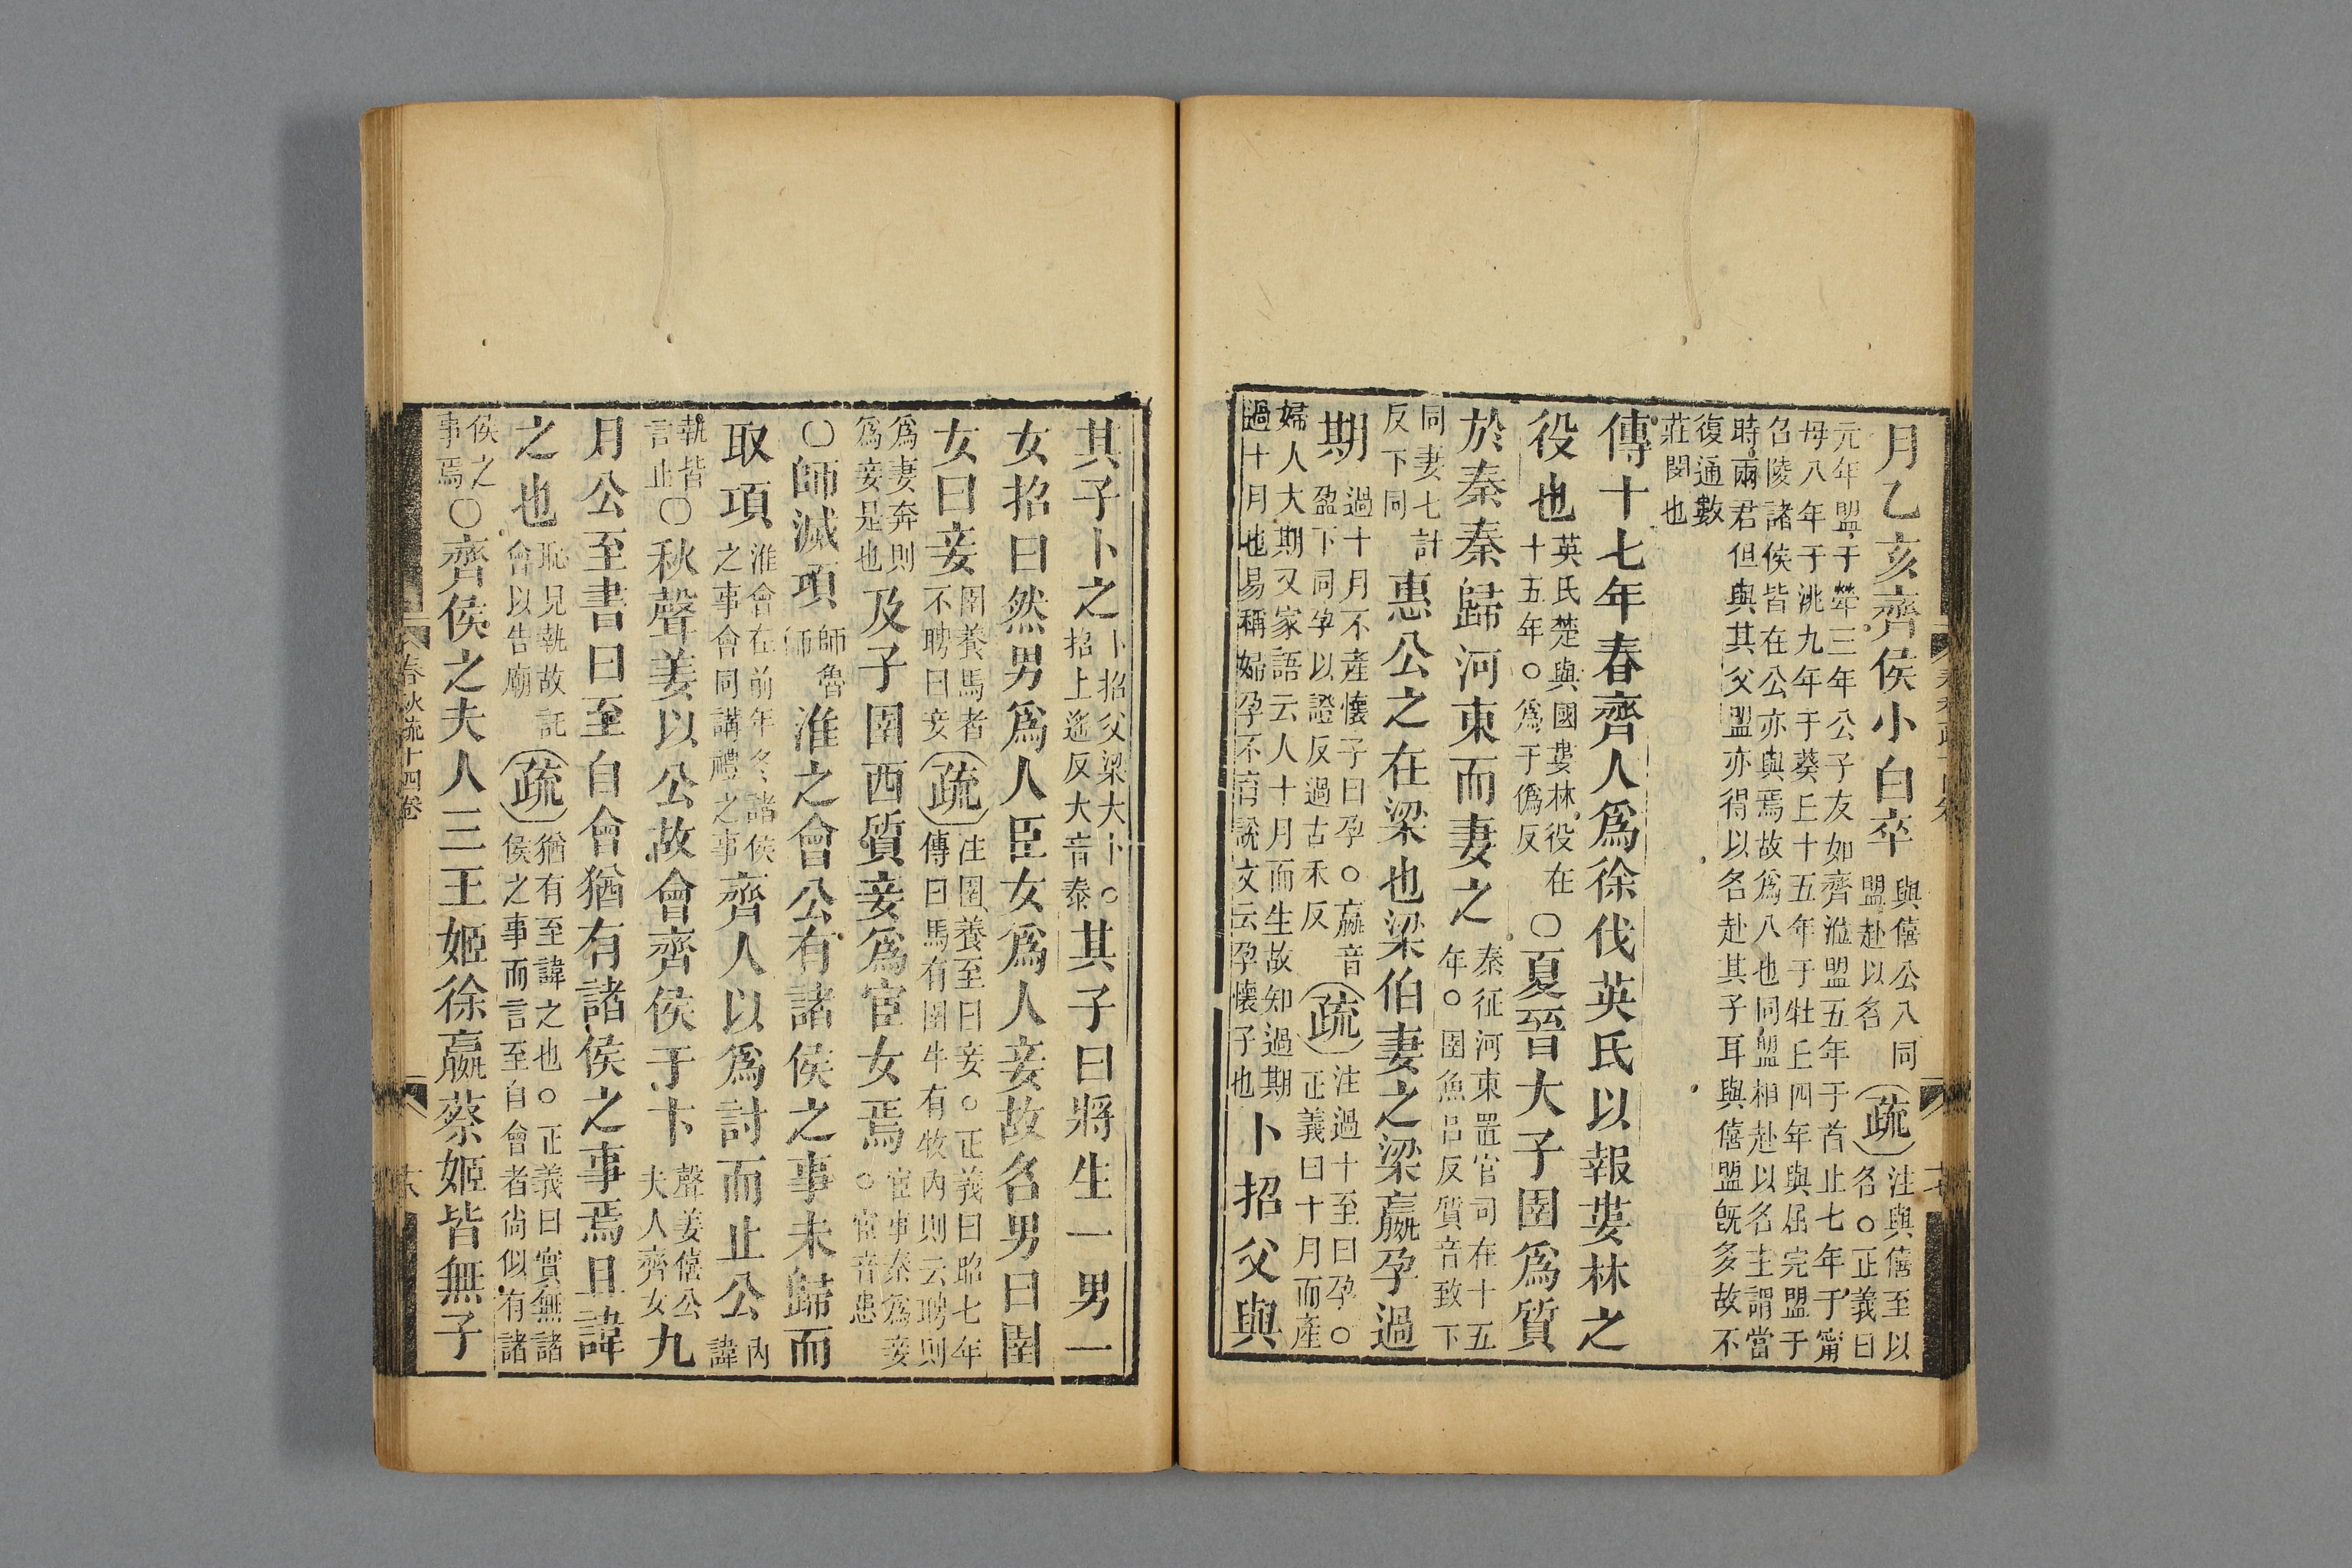 月乙亥齊侯小白卒與僖公八同盟赴以名疏注與僖至以名○正義曰
元年盟于犖三年公子友如齊涖盟五年于首止七年于甯
母八年于洮九年于葵丘十五年于牡丘四年與屈完盟于
召陵諸侯皆在公亦與焉故爲八也同盟相赴以名主謂當
時兩君但與其父盟亦得以名赴其子耳與僖盟旣多故不
復通數
莊閔也
傳十七年春齊人爲徐伐英氏以報婁林之
役也英氏楚與國婁林役在十五年○爲于僞反○夏晉大子圉爲質
於秦秦歸河東而妻之秦征河東置官司在十五年○圉魚呂反質音致下
同妻七計反下同惠公之在梁也梁伯妻之梁嬴孕過
期過十月不產懷子曰孕○嬴音盈下同孕以證反過古禾反疏注過十至曰孕○正義曰十月而產
婦人大期又家語云人十月而生故知過期
過十月也易稱婦孕不育說文云孕懷子也卜招父與
其子卜之卜招父梁大卜○招上遙反大音泰其子曰將生一男一
女招曰然男爲人臣女爲人妾故名男曰圉
女曰妾圉養馬者不聘曰妾疏注圉養至曰妾○正義曰昭七年傳曰馬有圉牛有牧內則云聘則
爲妻奔則爲妾是也及子圉西質妾爲宦女焉宦事秦爲妾○宦音患
○師滅項師魯師淮之會公有諸侯之事未歸而
取項淮會在前年冬諸侯之事會同講禮之事齊人以爲討而止公內諱
執皆言止○秋聲姜以公故會齊侯于卞聲姜僖公夫人齊女九
月公至書曰至自會猶有諸侯之事焉且諱
之也恥見執故託會以告廟疏猶有至諱之也○正義曰實無諸侯之事而言至自會者尙似有諸
侯之事焉○齊侯之夫人三王姬徐嬴蔡姬皆無子
春秋疏十四卷